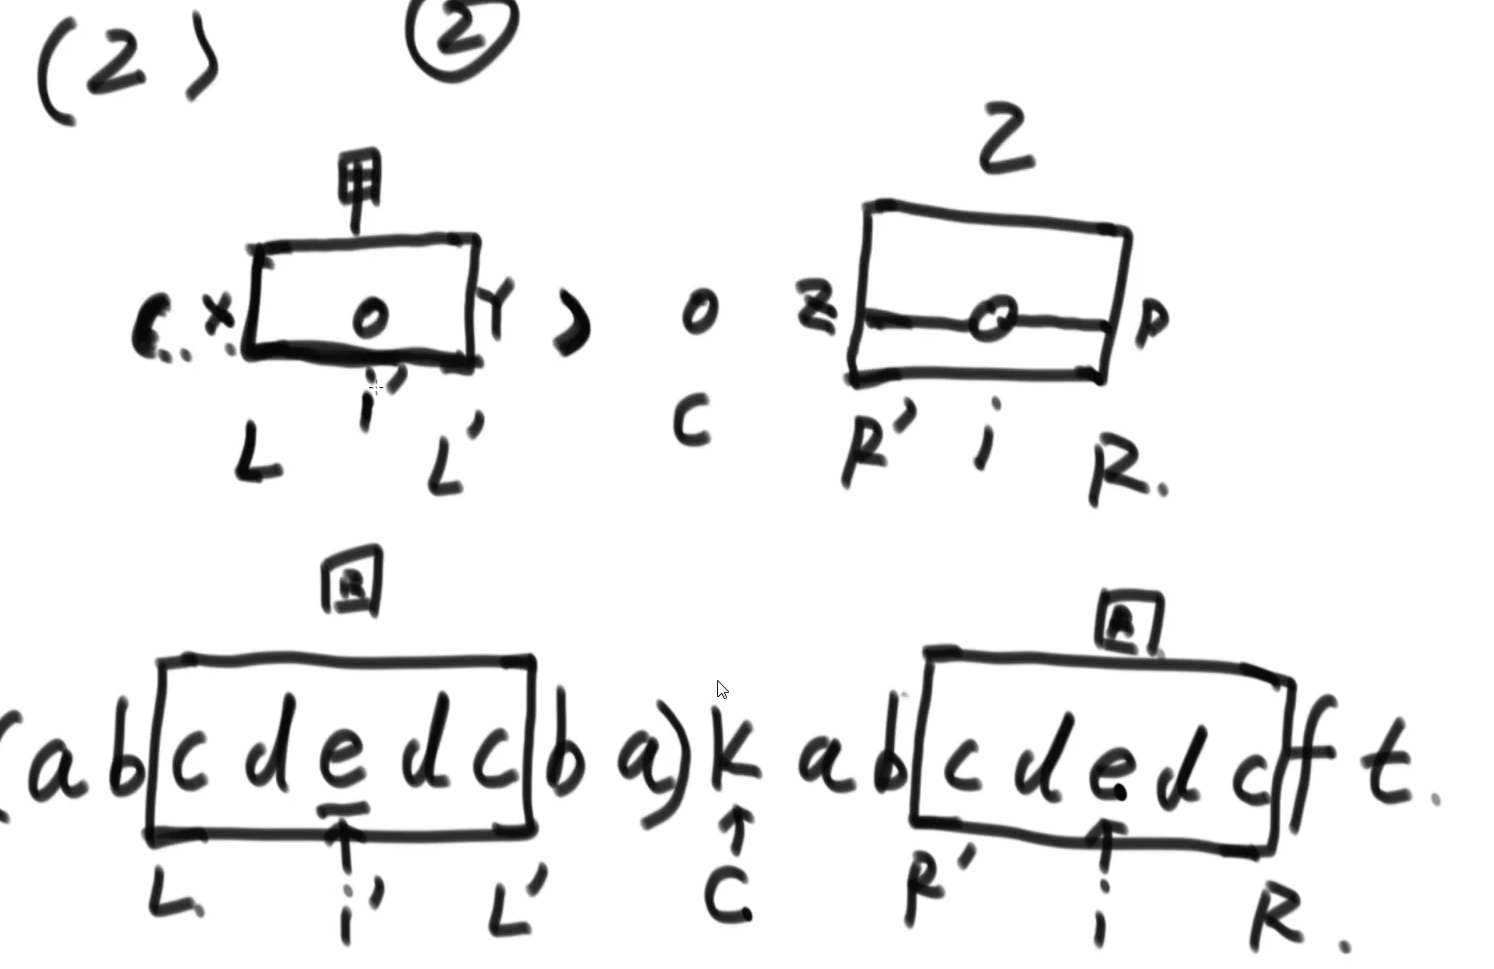 (2) ②
Z
( X O Y ) O Z O P
i' C
L L' R' i R.
(a b c d e d c b a) k a b c d e d c f t.
L i' L' C R' i R.